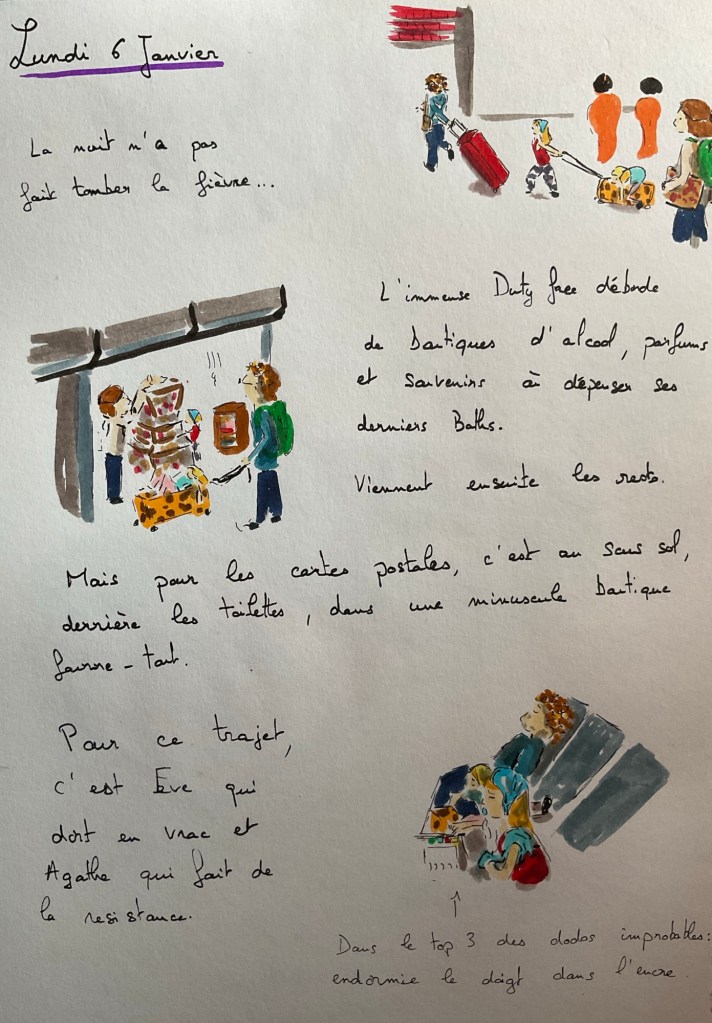 Lundi 6 Janvier
La nuit n'a pas
fait tomber la fièvre...
L'immense Duty free déborde
de boutiques d'alcool, parfums
et souvenirs où dépenser ses
derniers Baths.
Viennent ensuite les resto.
Mais pour les cartes postales, c'est au sous sol,
derrière les toilettes, dans une minuscule boutique
fourre-tout.
Pour ce trajet,
c'est Ève qui
dort en vrac et
Agathe qui fait de
la resistance.
Dans le top 3 des dodos improbables:
endormie le doigt dans l'encre.